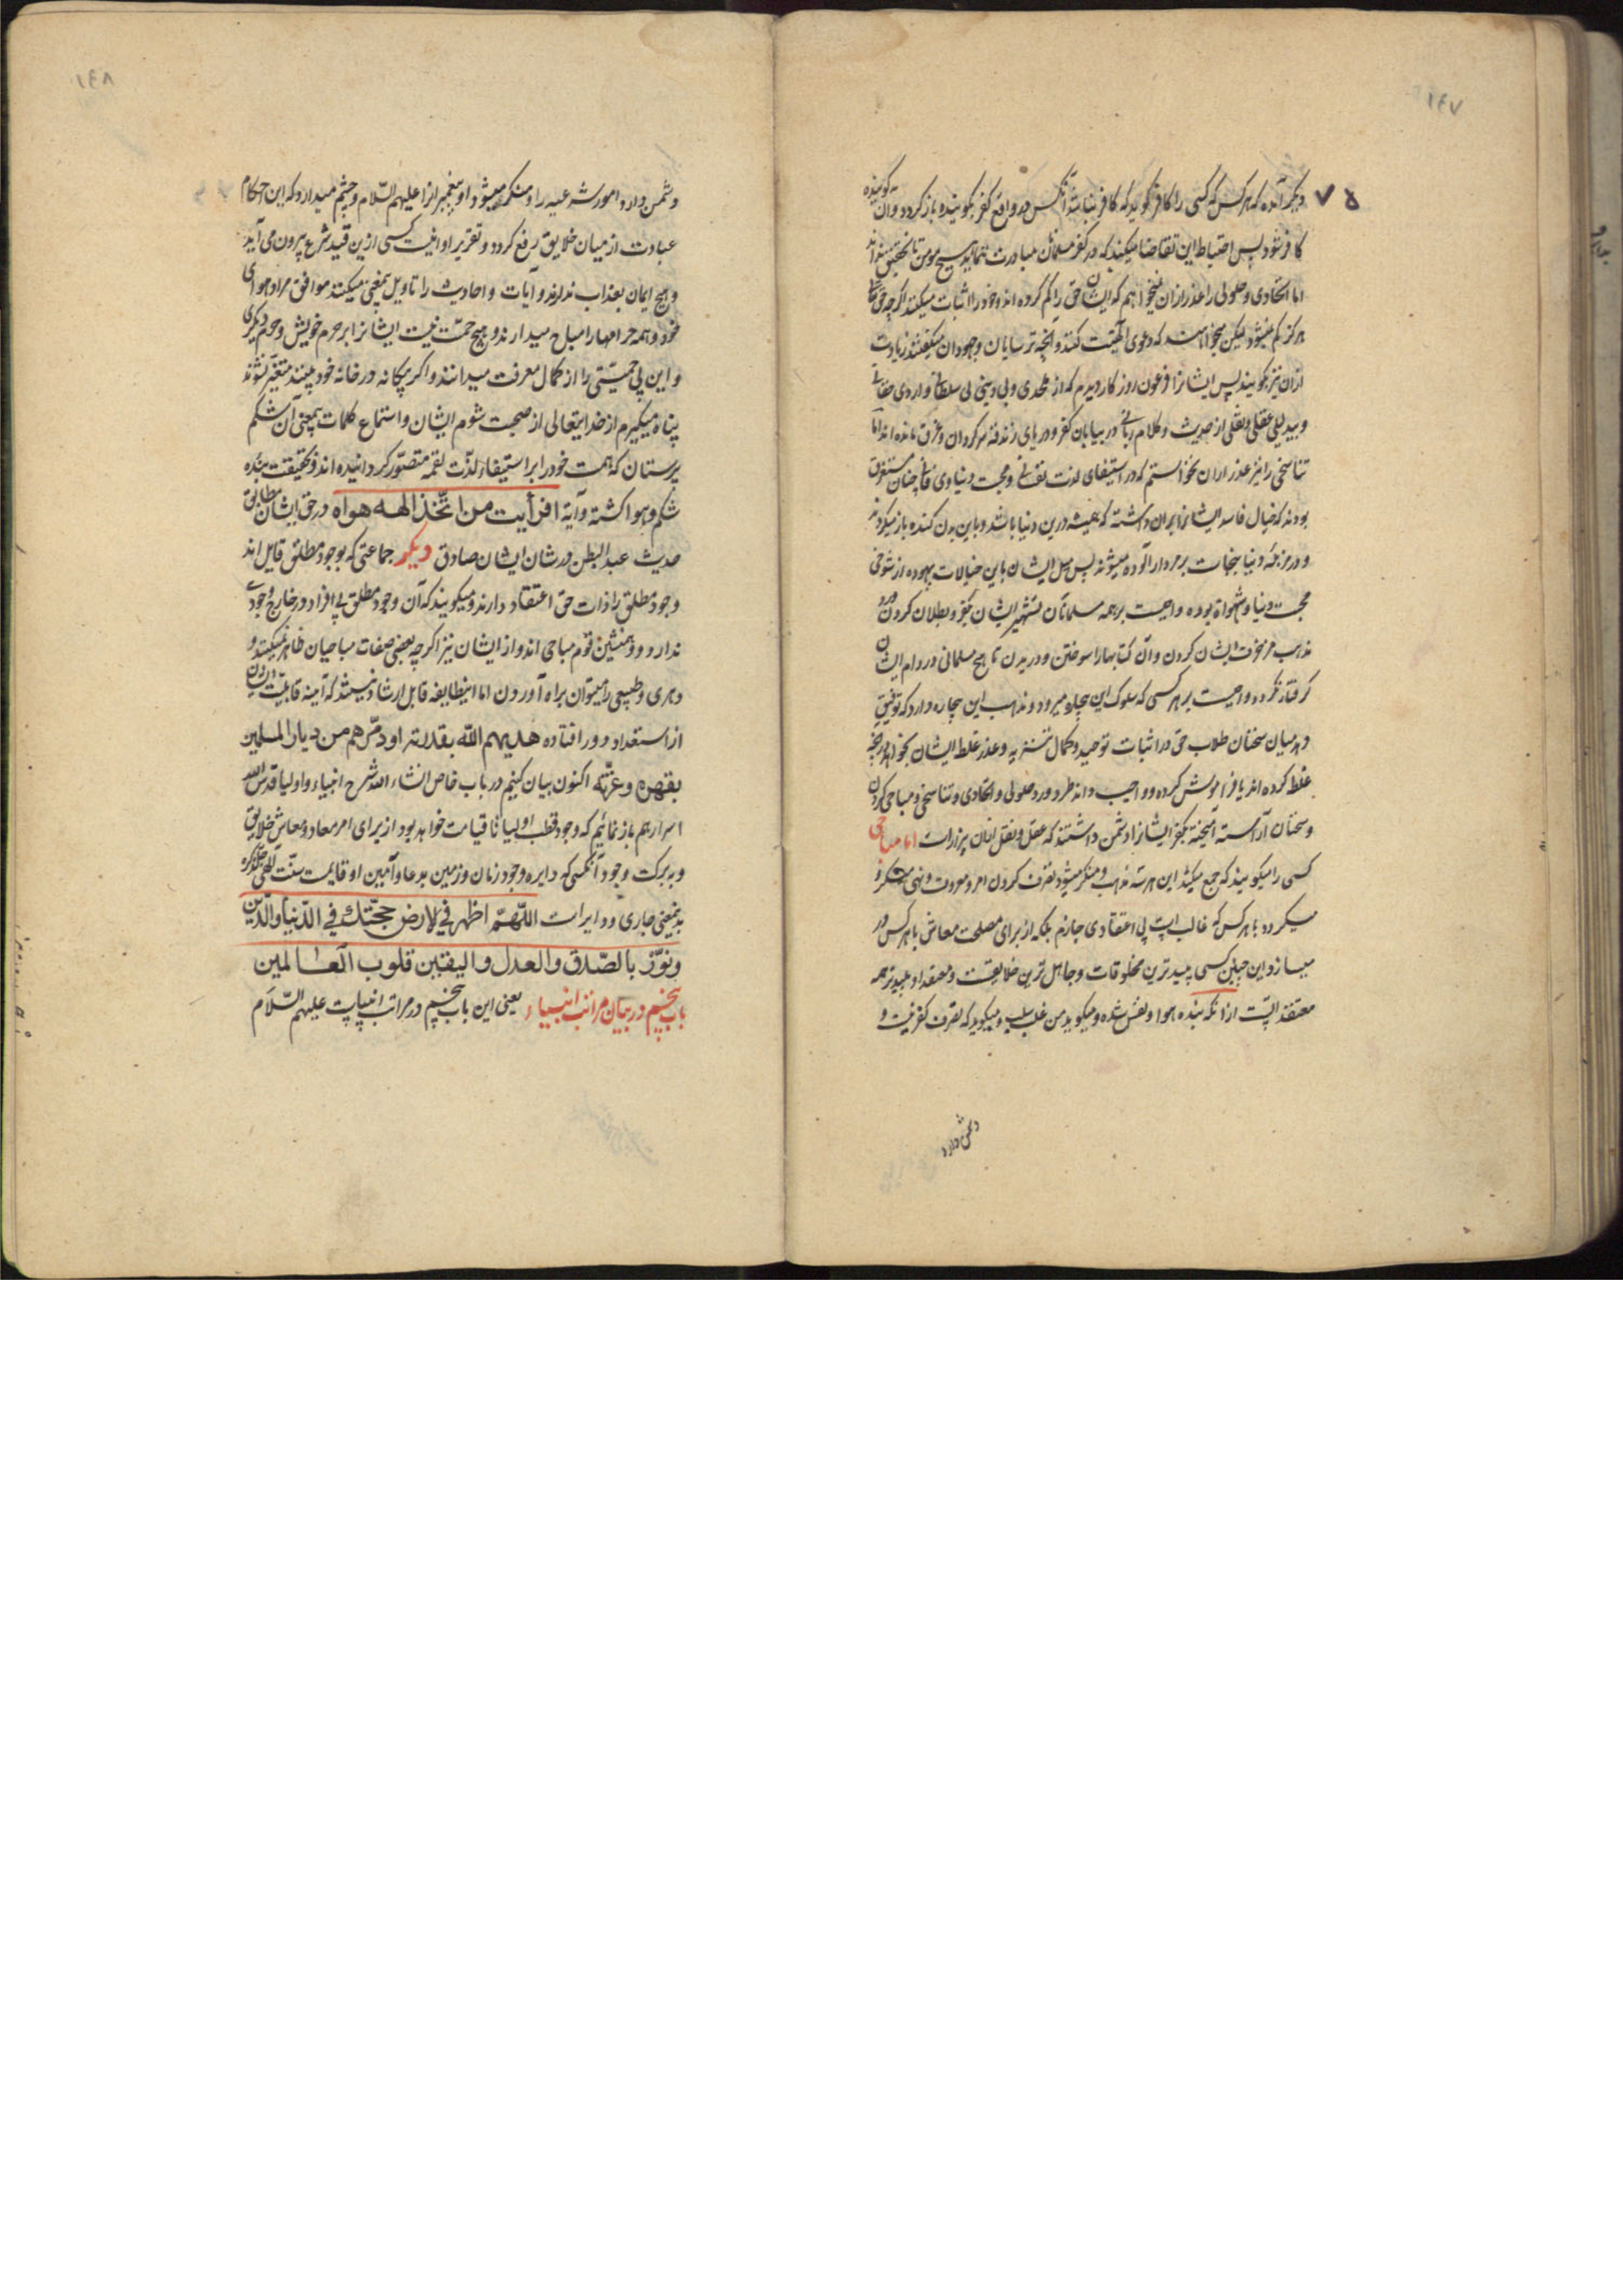 ١٤٧
٧٥
دیکر آنده که هر کس که کسی را کافر کوید که کافر نباشد آنکس در واقع کفر بکوینده باز کردد و آن کوینده
کافر شود پس احتیاط این تقاضا میکند که در کفر مسلمانان مبادرت ننماید هیچ مومن تا تحقیق
اما اتحادی و حلولی را عذر از آن نمیخواهم که ایشان حق را کم کرده اند و خود را اثبات میکنند اکرچه حق تعالی
هرکز کم نمیشود لیکن میخواهند که دعوی الهیت کنند و آنچه ترسایان و جهودان میکفتند زیادت
از آن نیز بکویند پس ایشانرا فرعون روزکار دیدم که از ملحدی و بی دینی بی سلطانی
و بیدلیلی عقلی و نقلی از حدیث و کلام ربانی در بیابان کفر و دریای زندقه سرکردان و غرق مانده اند اما
تناسخی را نیز عذر از آن نخواستم که در استیفای لذت نفسانی و محبت دنیاوی فانی چنان مستغرق
بودند که خیال فاسد ایشانرا بر آن داشته که همیشه درین دنیا باشد و باین بدن کنده باز میکردند
و در مزبله دنیا بنجاسات مردار آلوده میشوند پس میل ایشان باین خیالات بیهوده از شوخی
محبت دنیا و شهوات بوده و واجبست بر همه مسلمانان تشهیر ایشان بکفر و بطلان کردن و رد
مذهب مزخرف ایشان کردن و آن کتابها را سوختن و دریدن تا هیچ مسلمانی در دام ایشان
کرفتار نکردد و واجبست بر هر کسی که سلوک این بیچاره میرود و مذهب این بیچاره دارد که توفیق
دهد میان سخنان طلاب حق در اثبات توحید و کمال تنزیه و عذر غلط ایشان بخواهد و آنچه
غلط کرده اند یا فراموش کرده و واجب داند طرد و رد حلولی و اتحادی و تناسخی و مباحی کردن
و سخنان آراسته آمیخته بکفر ایشانرا دشمن داشتند که عقل و نقل از آن بیزارست اما مباحی
کسی را میکویند که جمع میکند این هر سه مذهب و منکر میشود تصرف کردن امر معروف و نهی منکر و
میکردد با هر کس که غالب است بی اعتقادی جازم بلکه از برای مصلحت معاش با هر کس در
میسازد این چنین کسی پلیدترین مخلوقات و جاهل ترین خلایقست و معتقد او پلیدتر همه
معتقد الیست از آنکه بنده هوا و نفس شده و میکوید من غلب سلب و میکوید که تصرف کفر نیست و
دشمن دارد
١٤٨
دشمن دارد امور شرعیه را و منکر میشود او پیغمبرانرا علیهم السلام و چشم میدارد که این احکام
عبادت از میان خلایق رفع کردد و تقریر او اینست کسی ازین قید شرع بیرون می آید
و هیچ ایمان بعذاب ندارند و آیات و احادیث را تاویل بمعنی میکنند موافق مراد و هوای
خود و همه حرامها را مباح میدارند و هیچ حمیت نیست ایشانرا بر حرم خویش و حرم دیکری
و این بی حمیتی را از کمال معرفت میدانند و اکر بیکانه در خانه خود ببینند متغیر نشوند
پناه میکیرم از خدایتعالی از صحبت شوم ایشان و استماع کلمات بیمعنی آن شکم
پرستان که همت خود را بر استیفاء لذت لقمه متصور کردانیده اند و بحقیقت بنده
شکم و هوا کشته و آیه افرأیت من اتخذ الهه هواه در حق ایشان مطابق
حدیث عبد البطن در شان ایشان صادق دیکر جماعتی که بوجود مطلق قایل اند
وجود مطلق را ذات حق اعتقاد دارند و میکویند که آن وجود مطلق بی افراد در خارج وجودی
ندارد و همنشین قوم مباحی اند و از ایشان نیز اکرچه بعضی صفات مباحیان ظاهر نمیکنند و
دهری و طبیعی را میتوان براه آوردن اما اینطایفه قابل ارشاد نیستند که آینه قابلیت ایشان
از استعداد دور افتاده هدیهم الله بقدرته او دمرهم من دیار المسلمین
بقهره وعزته اکنون بیان کنیم در باب خاص انشاء الله شرح انبیاء و اولیا قدس الله
اسرارهم باز نمائیم که وجود قطب اولیا تا قیامت خواهد بود از برای امر معاد و معاش خلایق
و ببرکت وجود آنکسی که دایره وجود زمان و زمین بدعا و آمین او قایمست سنت الهی
بدینمعنی جاری و دایر است اللهم اظهر فی الارض حجتك فی الدنیا والدین
ونور بالصدق والعدل والیقین قلوب العالمین
باب پنجم در بیان مراتب انبیاء یعنی این باب پنجم در مراتب انبیاست علیهم السلام